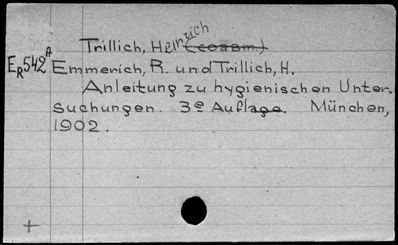 Trillich, Heinrich (соавт.)
ER542A Emmerich, R. und Trillich, H.
Anleitung zu hygienischen Unter.
suchungen. 3e Auflage. München,
1902.
+